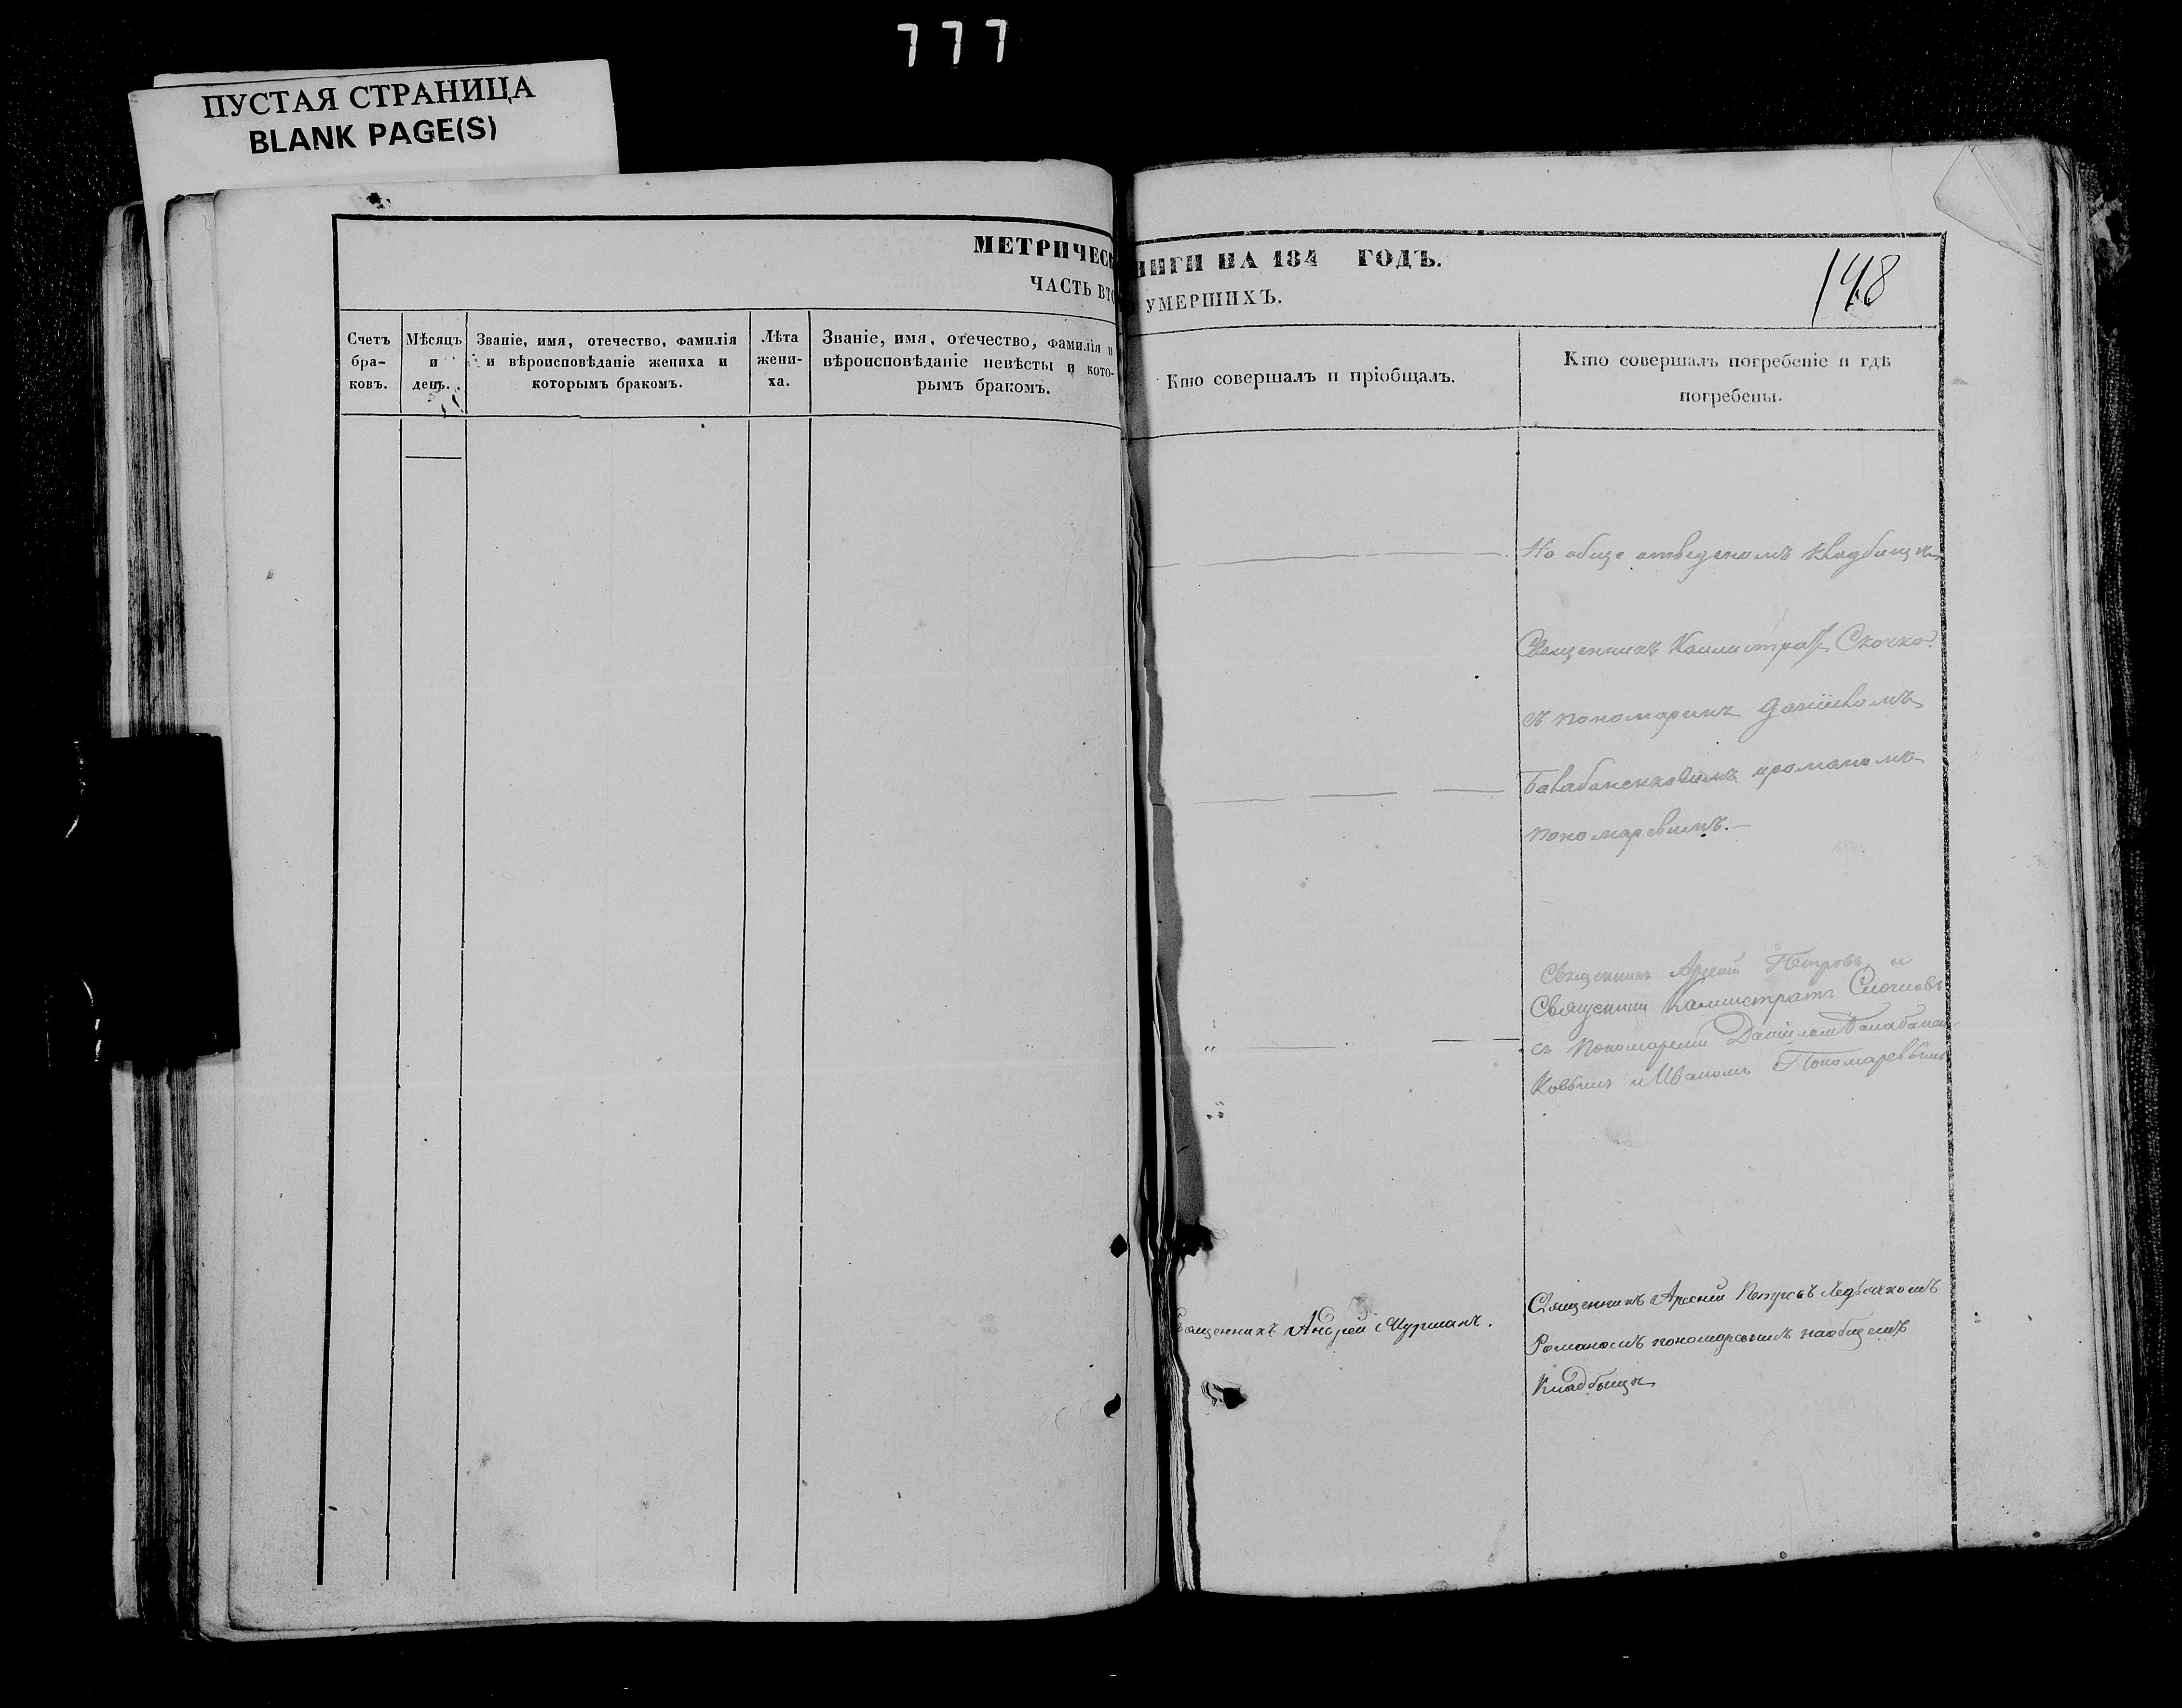 777
ПУСТАЯ СТРАНИЦА
BLANK PAGE(S)
МЕТРИЧЕС
ЧАСТЬ ВТО
Счетъ бра- ковъ.
Мѣсяцъ и день.
Званіе, имя, отечество, фамилія и вѣроисповѣданіе жениха и которымъ бракомъ.
Лѣта жени- ха.
Званіе, имя, отечество, фамилія и вѣроисповѣданіе невѣсты и кото- рымъ бракомъ.
НИГИ НА 184 ГОДЪ.
УМЕРШИХЪ.
148
Кто совершалъ и пріобщалъ.
Кто совершалъ погребеніе и гдѣ погребены.
На обще отведеномъ кладбище
Священникъ Каллистратъ
съ пономаремъ Даніиломъ
Балабаненковымъ
пономаревымъ.
Священникъ Арсеній Петровъ и
Священникъ Калистратъ
съ Пономаремъ Даніиломъ Балабанен-
ковымъ и Иваномъ Пономаревымъ
Священникъ Андрей
Священникъ Арсеній Петровъ
Романомъ пономаревымъ на общемъ
Кладбище